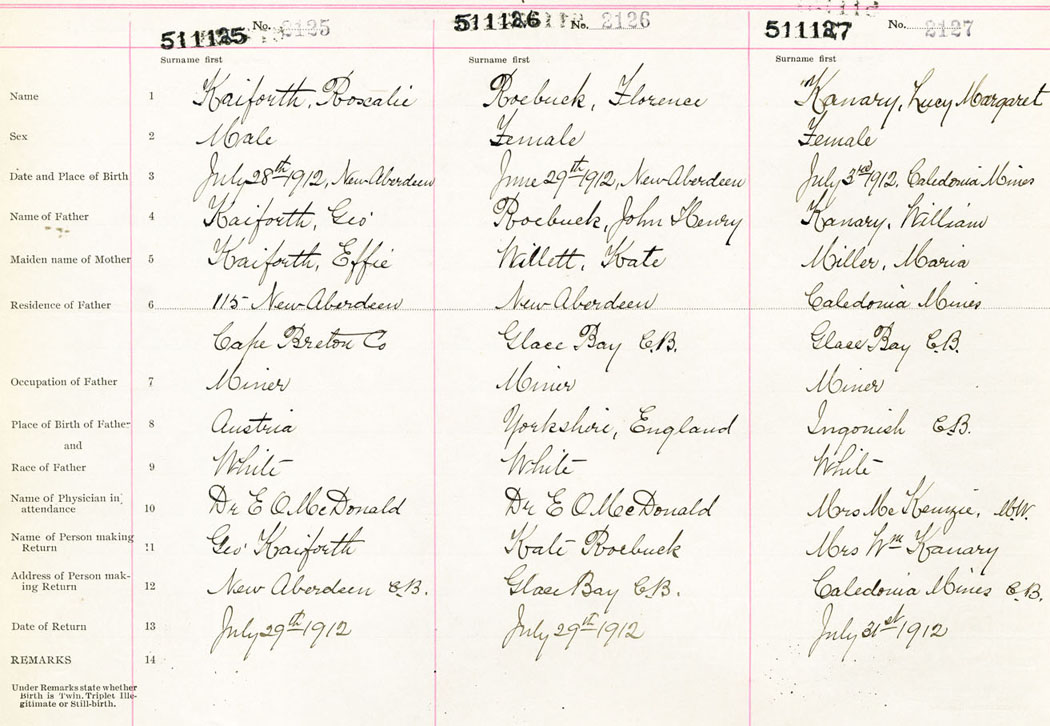 511125 No. 2125 511126 No. 2126 511127 No. 2127
Surname first Surname first Surname first
Name 1 Kaiforth, Rosalie Roebuck, Florence Kanary, Lucy Margaret
Sex 2 Male Female Female
Date and Place of Birth 3 July 28th 1912, New Aberdeen June 29th 1912, New Aberdeen July 3rd 1912, Caledonia Mines
Name of Father 4 Kaiforth, Geo Roebuck, John Henry Kanary, William
Maiden name of Mother 5 Kaiforth, Effie Willett, Kate Miller, Maria
Residence of Father 6 115 New Aberdeen New Aberdeen Caledonia Mines
Cape Breton Co Glace Bay C.B. Glace Bay C.B.
Occupation of Father 7 Miner Miner Miner
Place of Birth of Father 8 Austria Yorkshire, England Ingonish C.B.
and
Race of Father 9 White White White
Name of Physician in attendance 10 Dr E O McDonald Dr E O McDonald Mrs McKenzie, M.W.
Name of Person making Return 11 Geo Kaiforth Kate Roebuck Mrs Wm Kanary
Address of Person mak-
ing Return 12 New Aberdeen C.B. Glace Bay C.B. Caledonia Mines C.B.
Date of Return 13 July 29th 1912 July 29th 1912 July 31st 1912
REMARKS 14
Under Remarks state whether
Birth is Twin, Triplet Ille-
gitimate or Still-birth.